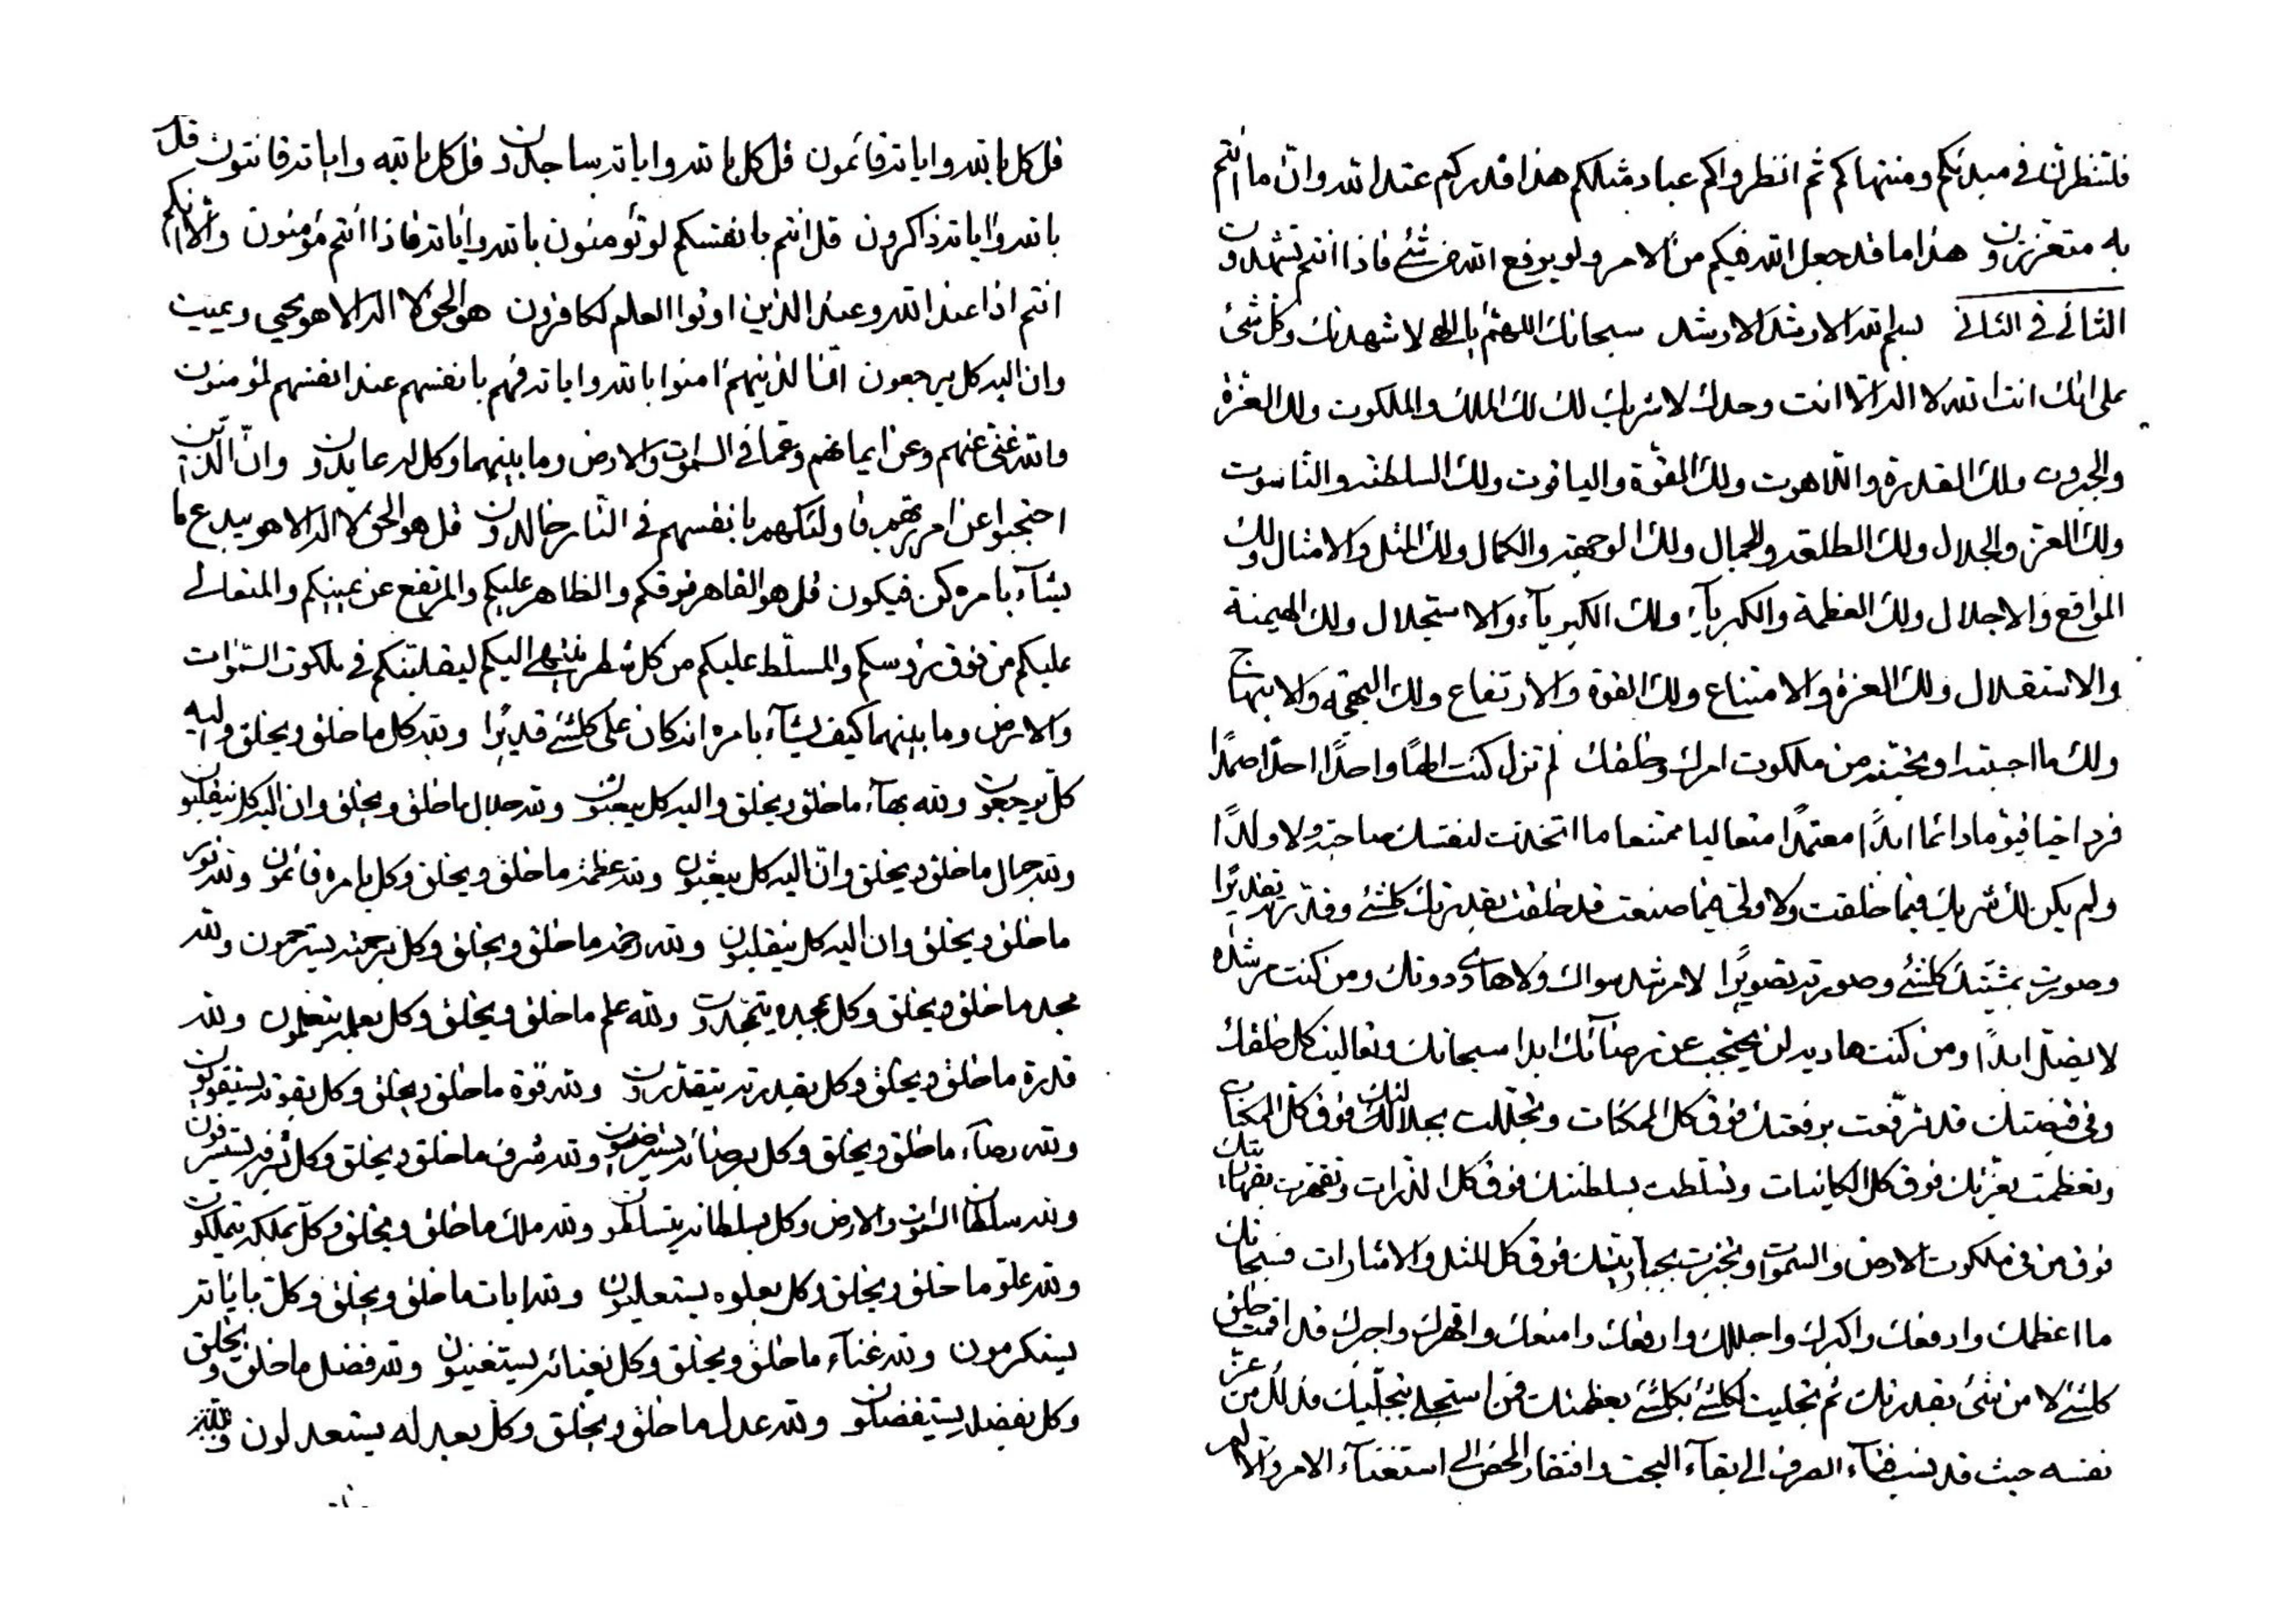 فلتنظرن في مبدئكم ومنتهاكم ثم انظروا كم عباد مثلكم هذا قدركم عند الله وان ما انتم
به متعززون هذا ما قد جعل الله فيكم من الامر ولو يرفع الله من شئ فاذا انتم تشهدون
الثاني في الثاني بسم الله الارشد الارشد سبحانك اللهم يا الهي لاشهدنك وكل شئ
على انك انت الله لا اله الا انت وحدك لا شريك لك لك الملك والملكوت ولك العزة
والجبروت ولك القدرة واللاهوت ولك القوة والياقوت ولك السلطنة والناسوت
ولك العز والجلال ولك الطلعة والجمال ولك الوجهة والكمال ولك المثل والامثال ولك
المواقع والاجلال ولك العظمة والكبرياء ولك الكبرياء والاستجلال ولك الهيمنة
والاستقلال ولك العزة والامتناع ولك القوة والارتفاع ولك البهجة والابتهاج
ولك ما احببته او تحببنه من ملكوت امرك وخلقك لم تزل كنت الها واحدا احدا صمدا
فردا حيا قيوما دائما ابدا معتمدا متعاليا ممتنعا ما اتخذت لنفسك صاحبة ولا ولدا
ولم يكن لك شريك فيما خلقت ولا ولي فيما صنعت قد خلقت بقدرتك كلشئ وقدرته تقديرا
وصورت بمشيتك كلشئ وصورته تصويرا لا مرشد سواك ولا هادي دونك ومن كنت مرشده
لا يضل ابدا ومن كنت هاديه لن يحتجب عن رضائك ابدا سبحانك وتعاليت كل خلقك
وفي قبضتك قد ترفعت برفعتك فوق كل الممكنات وتجللت بجلالتك فوق كل الممكنات
وتعظمت بعزتك فوق كل الكائنات وتسلطت بسلطنتك فوق كل الذرات وتقهرت بقهاريتك
فوق من في ملكوت الارض والسموات وتجبرت بجباريتك فوق كل المثل والاشارات فسبحانك
ما اعظمك وارفعك واكبرك واجللك وارفعك وامنعك واقهرك واجبرك قد اقمت خلق
كلشئ لا من شئ بقدرتك ثم تجليت لكلشئ بكلشئ بعظمتك فمن استجلى بتجليك قد لك من عز
نفسه حيث قد نسب فناء الصرف الى بقاء البحت وافتقار المحض الى استغناء الامر والا
قل كل بالله واياته قائمون قل كل بالله واياته ساجدون قل كل بالله واياته قانتون قل
بالله واياته ذاكرون قل انتم بانفسكم لو تؤمنون بالله واياته فاذا انتم مؤمنون والا انكم
انتم اذا عند الله وعند الذين اوتوا العلم لكافرون هو الحق لا اله الا هو يحيي ويميت
وان اليه كل يرجعون انما الذينهم امنوا بالله واياته فهم بانفسهم عند انفسهم لمؤمنون
والله غني عنهم وعن ايمانهم وعما في السموات والارض وما بينهما وكل له عابدون وان الذين
احتجبوا عن امر ربهم فاولئكهم بانفسهم في النار خالدون قل هو الحق لا اله الا هو يبدع ما
يشاء بامره كن فيكون قل هو القاهر فوقكم والظاهر عليكم والمرتفع عن يمينكم والمتعالي
عليكم من فوق رؤسكم والمسلط عليكم من كل شطر ينتهي اليكم ليقلبنكم في ملكوت السموات
والارض وما بينهما كيف يشاء بامره انه كان على كلشئ قديرا ولله كل ما خلق ويخلق واليه
كل يرجعون ولله بهاء ما خلق ويخلق واليه كل يبعثون ولله جلال ما خلق ويخلق وان اليه كل ينقلبون
ولله جمال ما خلق ويخلق وان اليه كل يبعثون ولله عظمة ما خلق ويخلق وكل بامره قائمون ولله نور
ما خلق ويخلق وان اليه كل ينقلبون ولله رحمة ما خلق ويخلق وكل برحمته يسترحمون ولله
مجد ما خلق ويخلق وكل بمجده يتمجدون ولله علم ما خلق ويخلق وكل بعلمه يتعلمون ولله
قدرة ما خلق ويخلق وكل بقدرته يتقدرون ولله قوة ما خلق ويخلق وكل بقوته يستقوون
ولله رضاء ما خلق ويخلق وكل برضائه يسترضون ولله شرف ما خلق ويخلق وكل بشرفه يستشرفون
ولله سلطان السموات والارض وكل بسلطانه يتسلطون ولله ملك ما خلق ويخلق وكل بملكه يتملكون
ولله علو ما خلق ويخلق وكل بعلوه يستعليون ولله ايات ما خلق ويخلق وكل باياته
يستكرمون ولله غناء ما خلق ويخلق وكل بغنائه يستغنيون ولله فضل ما خلق ويخلق
وكل بفضله يستفضلون ولله عدل ما خلق ويخلق وكل بعدله يستعدلون ولله